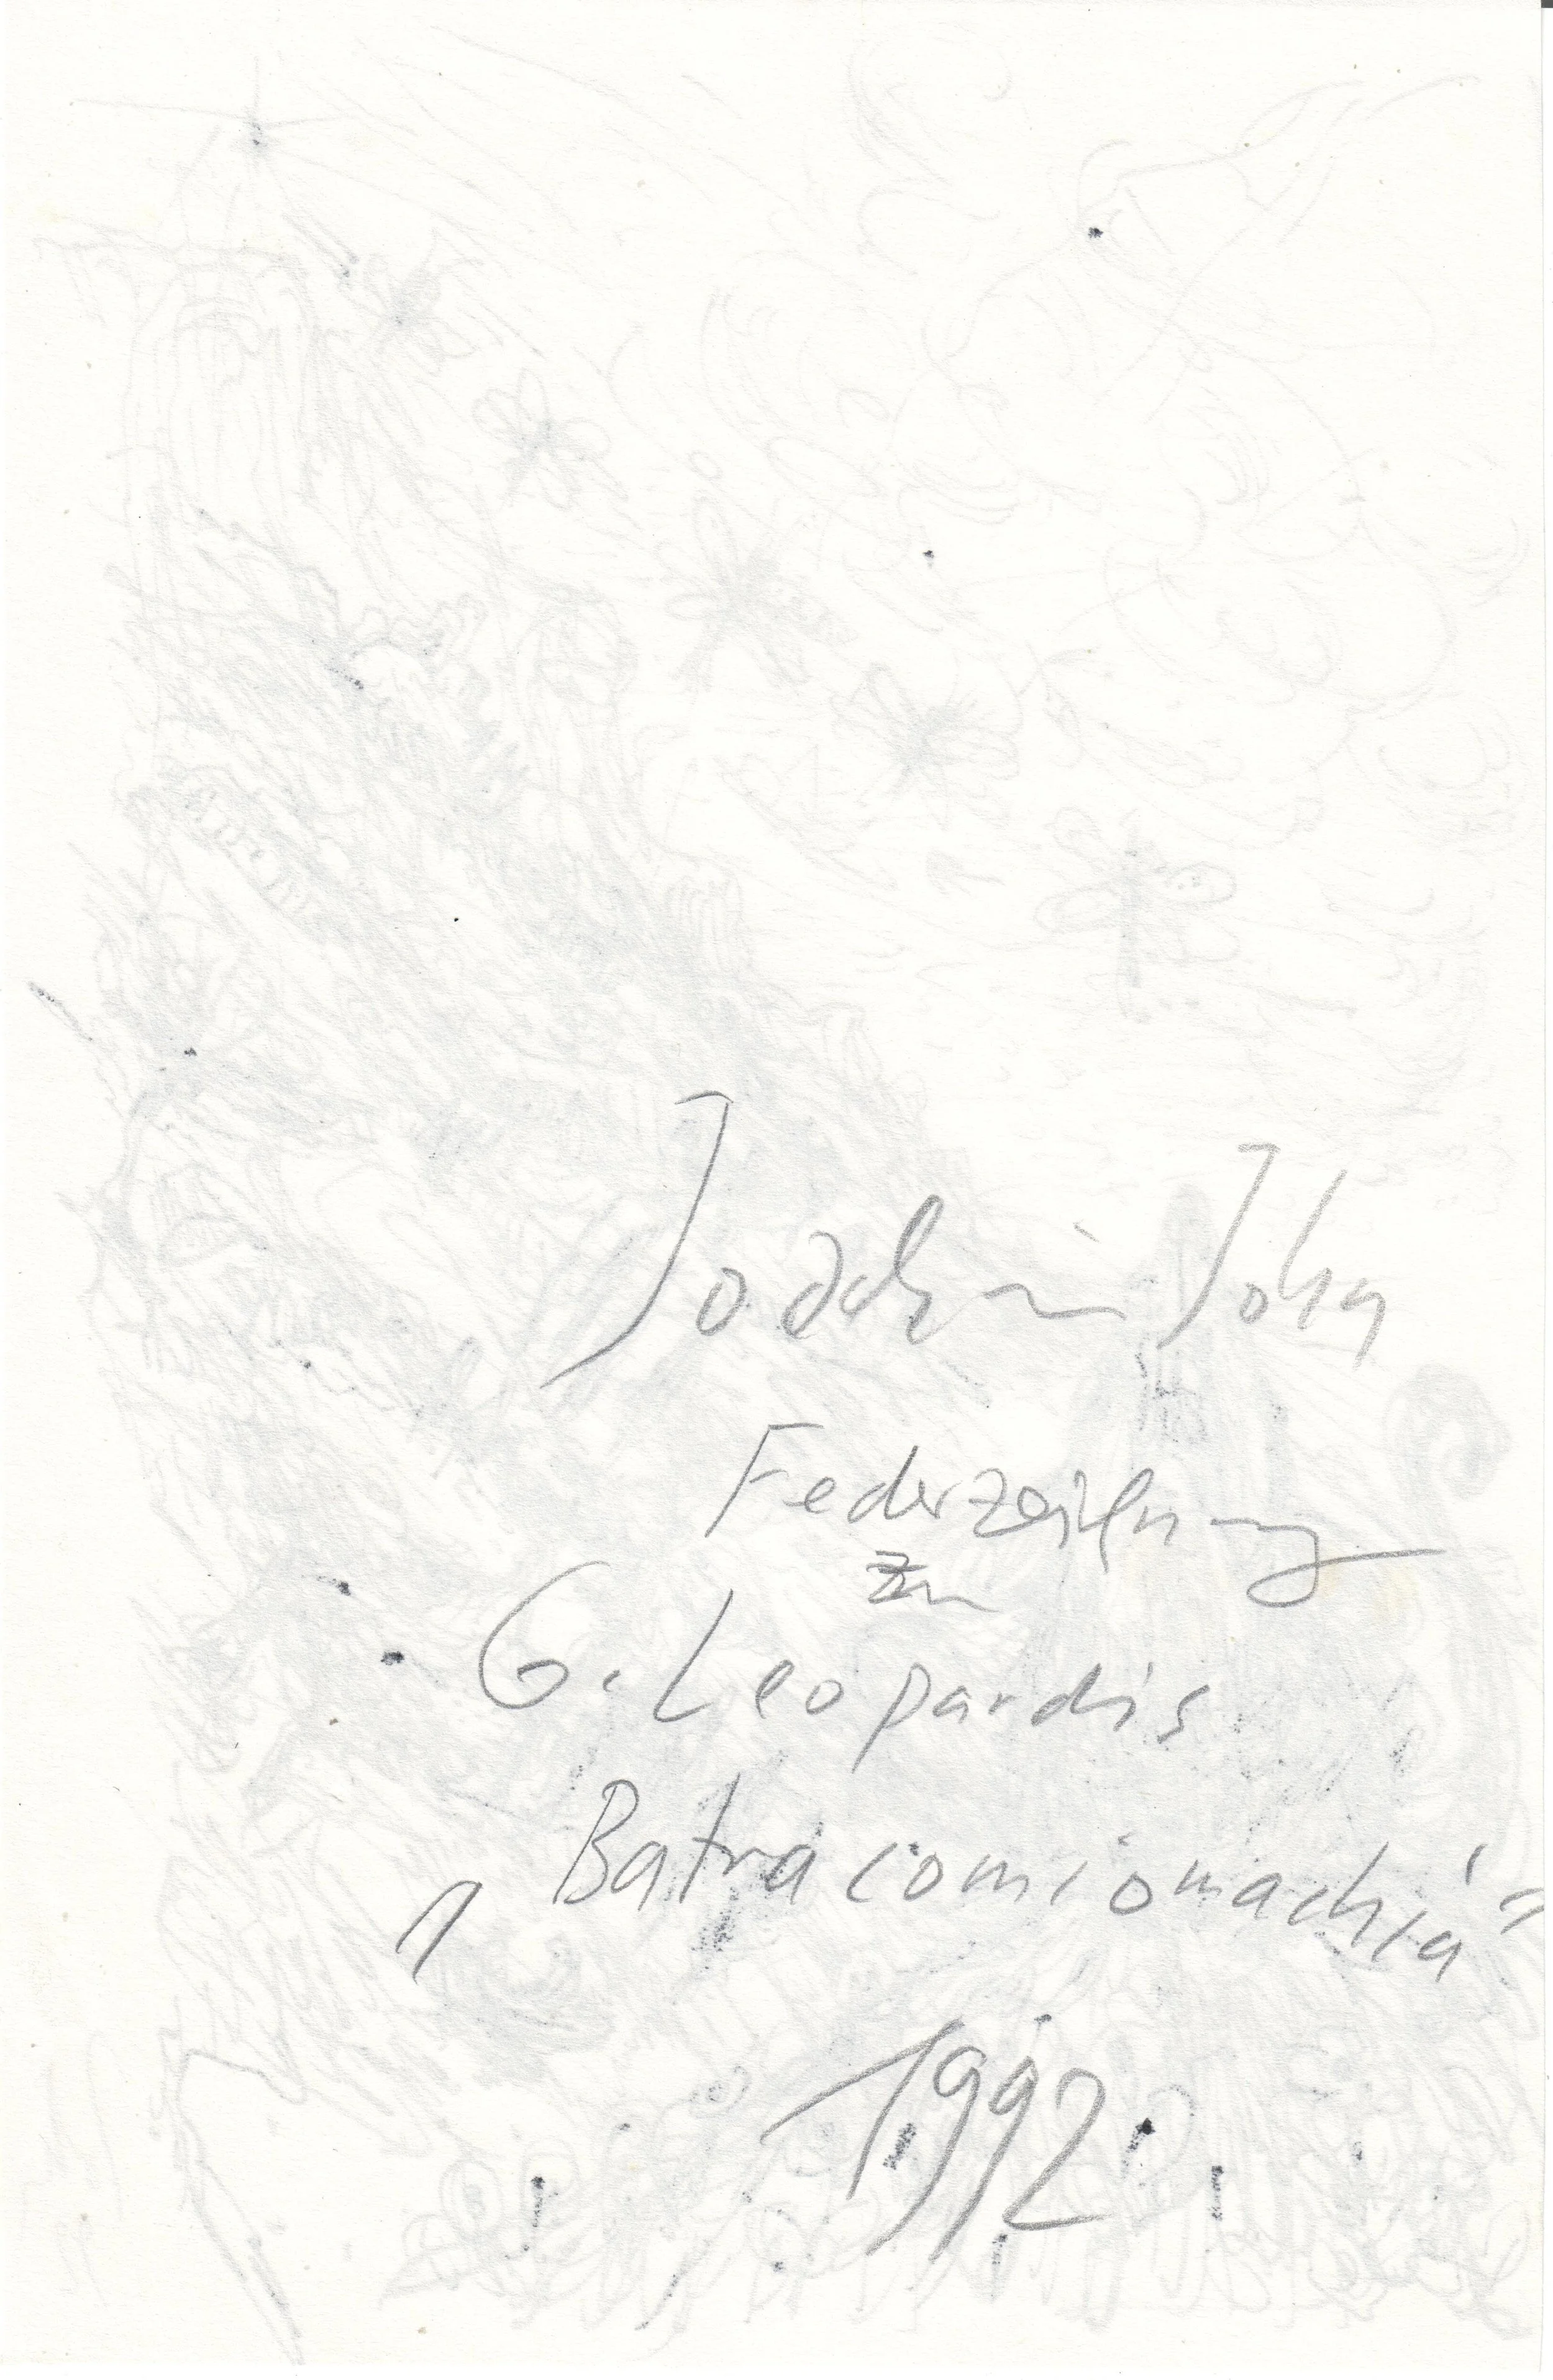 Joachim John
Federzeichnung
zu
G. Leopardis
„Batracomiomachia“
1992